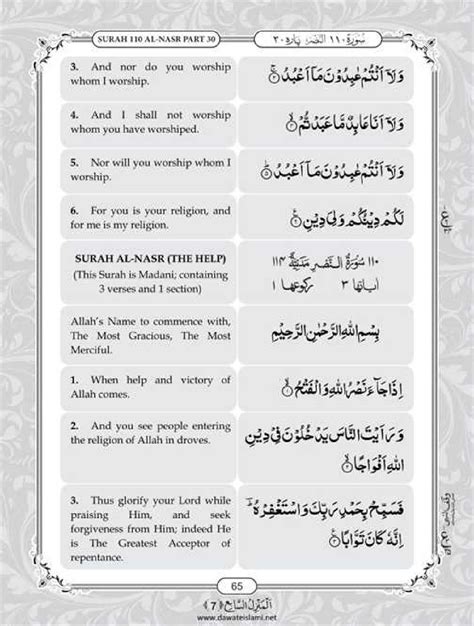 SURAH 110 AL-NASR PART 30
سُوْرَة ١١٠ النَّصْر پارہ ٣٠
3. And nor do you worship
whom I worship.
وَلَاۤ اَنْتُمْ عٰبِدُوْنَ مَاۤ اَعْبُدُ ۚ﴿۳﴾
4. And I shall not worship
whom you have worshiped.
وَلَاۤ اَنَا عَابِدٌ مَّا عَبَدْتُّمْ ۙ﴿۴﴾
5. Nor will you worship whom I
worship.
وَلَاۤ اَنْتُمْ عٰبِدُوْنَ مَاۤ اَعْبُدُ ؕ﴿۵﴾
6. For you is your religion, and
for me is my religion.
لَكُمْ دِيْنُكُمْ وَلِیَ دِيْنِ ﴿۶﴾
SURAH AL-NASR (THE HELP)
(This Surah is Madani; containing
3 verses and 1 section)
١١٠ سُوْرَةُ النَّصْرِ مَدَنِيَّةٌ ١١٤
اٰياتها ٣ ركوعها ١
Allah's Name to commence with,
The Most Gracious, The Most
Merciful.
بِسْمِ اللّٰهِ الرَّحْمٰنِ الرَّحِيْمِ
1. When help and victory of
Allah comes.
اِذَا جَآءَ نَصْرُ اللّٰهِ وَالْفَتْحُ ۙ﴿۱﴾
2. And you see people entering
the religion of Allah in droves.
وَرَاَيْتَ النَّاسَ يَدْخُلُوْنَ فِیْ دِيْنِ
اللّٰهِ اَفْوَاجًا ۙ﴿۲﴾
3. Thus glorify your Lord while
praising Him, and seek
forgiveness from Him; indeed He
is The Greatest Acceptor of
repentance.
فَسَبِّحْ بِحَمْدِ رَبِّكَ وَاسْتَغْفِرْهُ ؔؕ
اِنَّهٗ كَانَ تَوَّابًا ﴿۳﴾
65
اَلْمَنْزِلُ السَّابِع ﴿7﴾
www.dawateislami.net